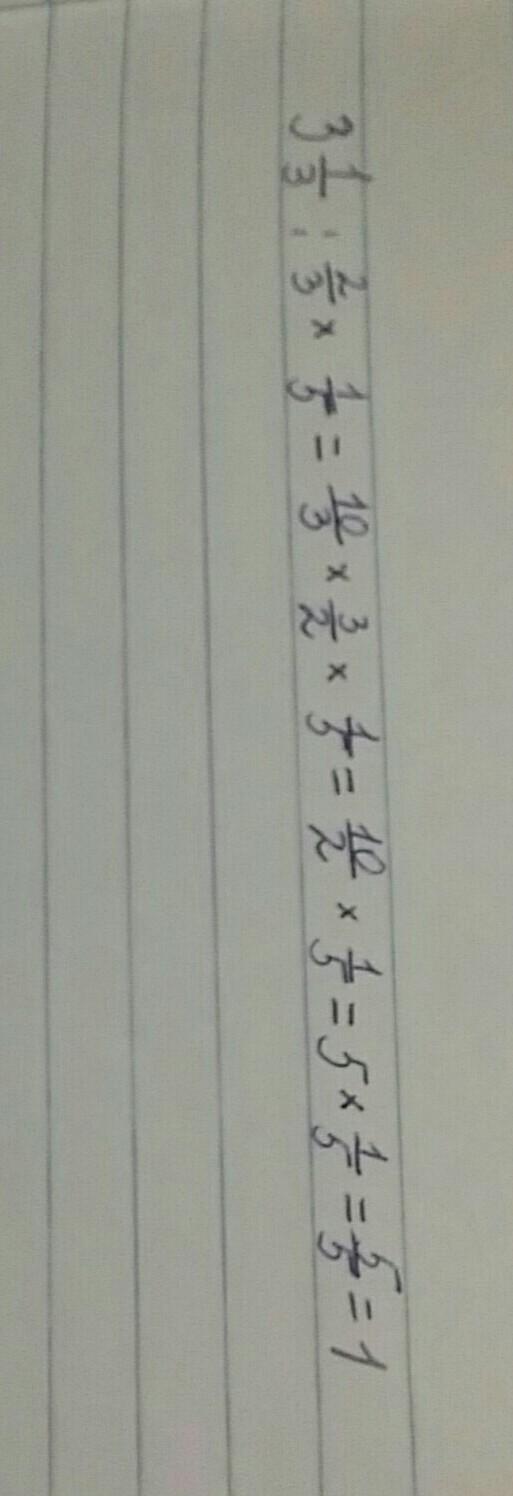 3 1/3 : 2/3 × 1/5 = 10/3 × 3/2 × 1/5 = 10/2 × 1/5 = 5 × 1/5 = 5/5 = 1